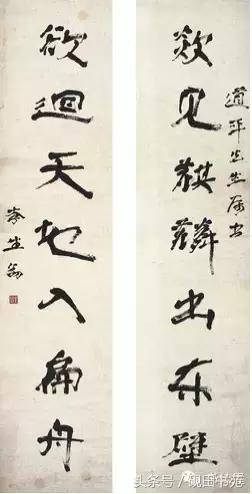 道平先生属书
欻见麒麟出东壁
欲迴天地入扁舟
李生翁
头条号/砚田书苑